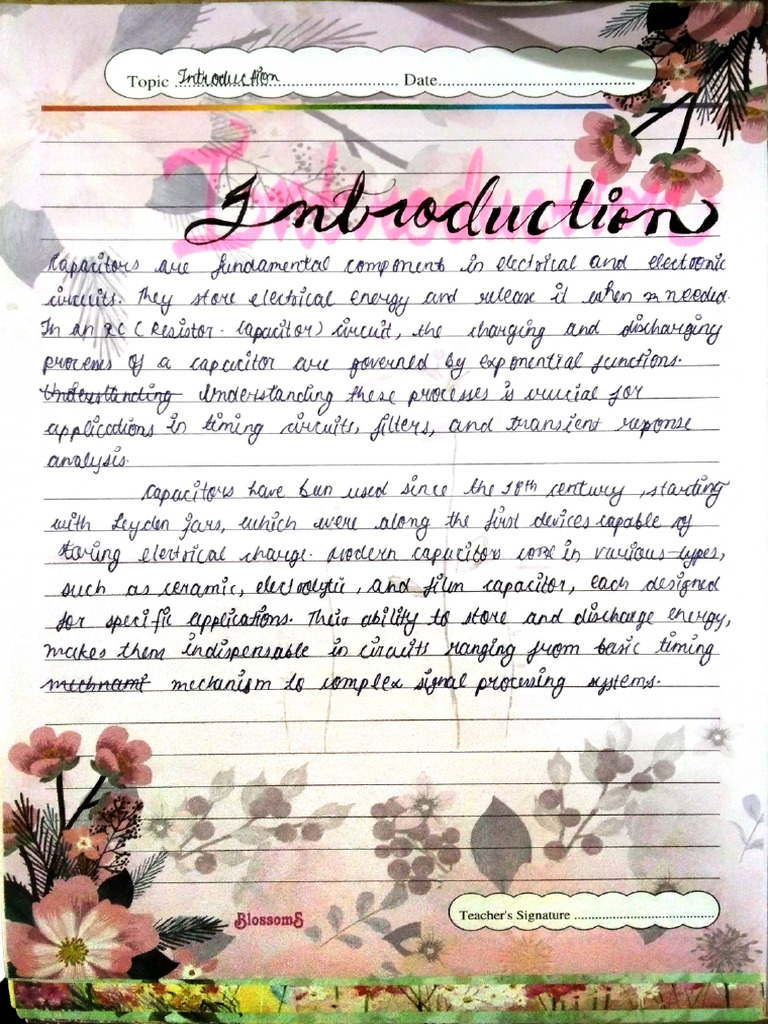 Topic Introduction Date
Introduction
Capacitors are fundamental component in electrical and electronic
circuits. They store electrical energy and release it when needed.
In an RC (Resistor - Capacitor) circuit, the charging and discharging
process of a capacitor are governed by exponential functions.
Understanding Understanding these processes is crucial for
applications in timing circuits, filters, and transient reponse
analysis.
Capacitors have been used since the 18th century, starting
with Leyden jars, which were along the first devices capable of
storing electrical charge. Modern capacitors come in various types,
such as ceramic, electrolytic, and film capacitor, each designed
for specific applications. Their ability to store and discharge energy,
makes them indispensable in circuits ranging from basic timing
mechanism to complex signal processing systems.
BlossomS
Teacher's Signature